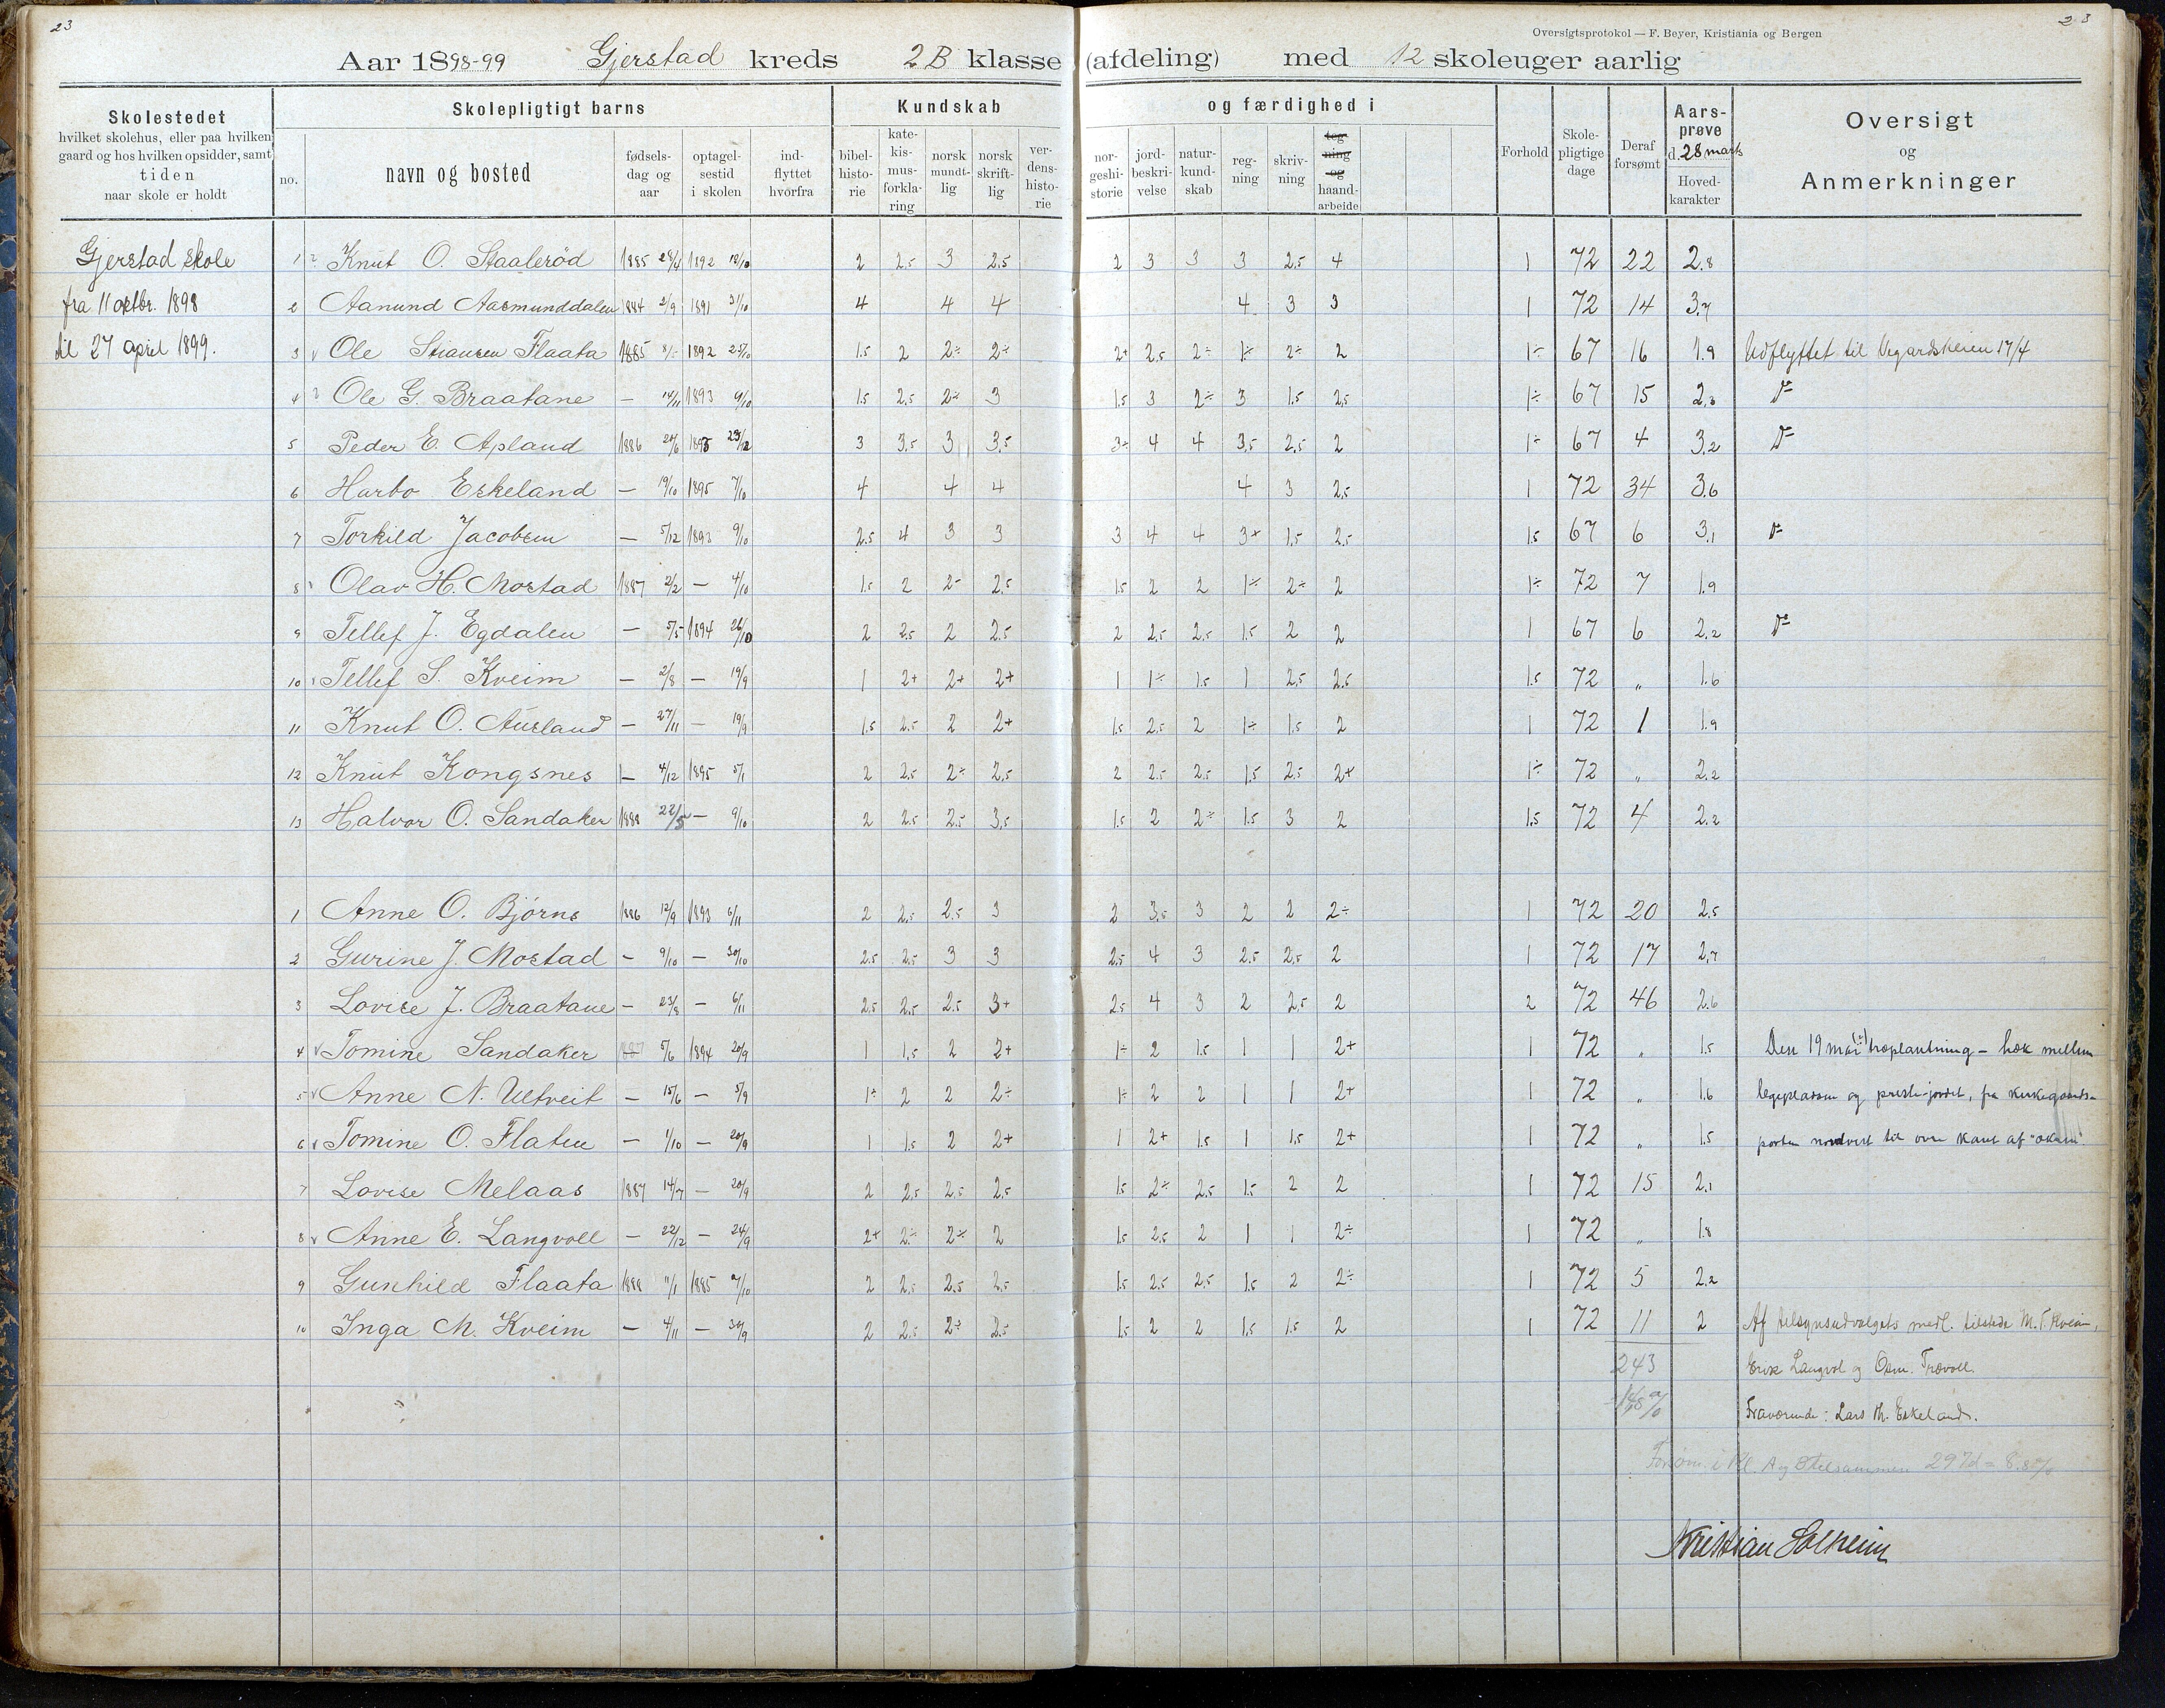 23
23
Oversigtsprotokol — F. Beyer, Kristiania og Bergen
Aar 1898-99 Gjerstad kreds 2B klasse (afdeling) med 12 skoleuger aarlig
Skolestedet
hvilket skolehus, eller paa hvilken
gaard og hos hvilken opsidder, samt
tiden
naar skole er holdt
Skolepligtigt barns
no.
navn og bosted
fødsels-
dag og
aar
optagel-
sestid
i skolen
ind-
flyttet
hvorfra
Kundskab og færdighed i
bibel-
histo-
rie
kate-
kis-
mus-
forkla-
ring
norsk
mundt-
lig
norsk
skrift-
lig
ver-
dens-
histo-
rie
nor-
geshi-
storie
jord-
beskri-
velse
natur-
kund-
skab
reg-
ning
skriv-
ning
teg-
ning
og
haand-
arbeide
Forhold
Skole-
pligtige
dage
Deraf
forsømt
Aars-
prøve
d. 28 marts
Hoved-
karakter
Oversigt
og
Anmerkninger
Gjerstad skole
fra 11 oktbr. 1898
til 27 april 1899.
1 Knut O. Staalerød 1885 28/4 1892 12/10 2 2.5 3 2.5 2 3 3 3 2.5 4 1 72 22 2.8
2 Aanund Aasmunddalen 1884 2/9 1891 31/10 4 4 4 4 3 3 1 72 14 3.7
3 Ole Stiansen Flaata 1885 1892 25/10 1.5 2 2÷ 2÷ 2+ 2.5 2÷ 1÷ 2÷ 2 1÷ 67 16 1.9 Udflyttet til Vegardsheien 17/4
4 Ole G. Braatane — 14/11 1893 9/10 1.5 2.5 2÷ 3 1.5 3 2÷ 3 1.5 2.5 1÷ 67 15 2.3 do
5 Peder E. Apland 1886 1895 29/12 3 3.5 3 3.5 3÷ 4 4 3.5 2.5 2 1÷ 67 4 3.2 do
6 Harbo Eskeland — 19/10 1895 7/10 4 4 4 4 3 2.5 1 72 34 3.6
7 Torkild Jacobsen — 5/12 1893 9/10 2.5 4 3 3 3 4 4 3+ 1.5 2.5 1.5 67 6 3.1 do
8 Olav H. Mostad 1887 2/2 — 4/10 1.5 2 2÷ 2.5 1.5 2 2 1÷ 2÷ 2 1÷ 72 7 1.9
9 Tellef J. Egdalen — 5/5 1894 26/10 2 2.5 2 2.5 2 2.5 2.5 1.5 2 2 1 67 6 2.2 do
10 Tellef S. Kveim — 2/8 — 19/9 1 2+ 2+ 2+ 1 1÷ 1.5 1 2.5 2.5 1.5 72 „ 1.6
11 Knut O. Ausland — 27/11 — 19/9 1.5 2.5 2 2+ 1.5 2.5 2 1÷ 1.5 2 1 72 1 1.9
12 Knut Kongsnes — 4/12 1895 5/1 2 2.5 2÷ 2.5 2 2.5 2.5 1.5 2.5 2+ 1÷ 72 „ 2.2
13 Halvor O. Sandaker 1888 22/5 — 9/10 2 2.5 2.5 3.5 1.5 2 2÷ 1.5 3 2 1.5 72 4 2.2
1 Anne O. Bjorns 1886 12/9 1893 6/11 2 2.5 2.5 3 2 3.5 3 2 2 2÷ 1 72 20 2.5
2 Gurine J. Mostad — 9/10 — 30/10 2.5 2.5 3 3 2.5 4 3 2.5 2.5 2 1 72 17 2.7
3 Lovise J. Braatane — 23/8 — 6/11 2.5 2.5 2.5 3+ 2.5 4 3 2 2.5 2 2 72 46 2.6
4 Tomine Sandaker 1887 5/6 1894 20/9 1 1.5 2 2+ 1÷ 2 1.5 1 1 2+ 1 72 „ 1.5 Den 19 mai træplantning – hæk mellem
5 Anne N. Ultveit — 15/6 — 5/9 1÷ 2 2 2÷ 1÷ 2 2 1 1 2+ 1 72 „ 1.6 legeplassen og preste-jordet, fra kirkegaards-
6 Tomine O. Flaten — 1/10 — 20/9 1 1.5 2 2+ 1 2+ 1.5 1 1.5 2+ 1 72 „ 1.5 porten nordvest til øvre kant af
7 Lovise Melaas 1887 14/7 — 20/9 2 2.5 2.5 2.5 1.5 2÷ 2.5 1.5 2 2 1 72 15 2.1
8 Anne E. Langvoll — 22/12 — 24/9 2+ 2÷ 2÷ 2 1.5 2.5 2 1 1 2÷ 1 72 „ 1.8
9 Gunhild Flaata 1888 11/1 1885 7/10 2 2.5 2.5 2.5 1.5 2.5 2.5 1.5 2 2÷ 1 72 5 2.2
10 Inga M. Kveim — 4/11 — 30/9 2 2.5 2÷ 2.5 1.5 2 2 1.5 1.5 2 1 72 11 2 Af tilsynsudvalgets medl. tilstede M. T. Kveim,
243 Langvol og Osm. Trævoll.
Fraværende: Lars Th. Eskeland.
i Kl. A og B tilsammen 297d = 8.8%
Kristian Solheim